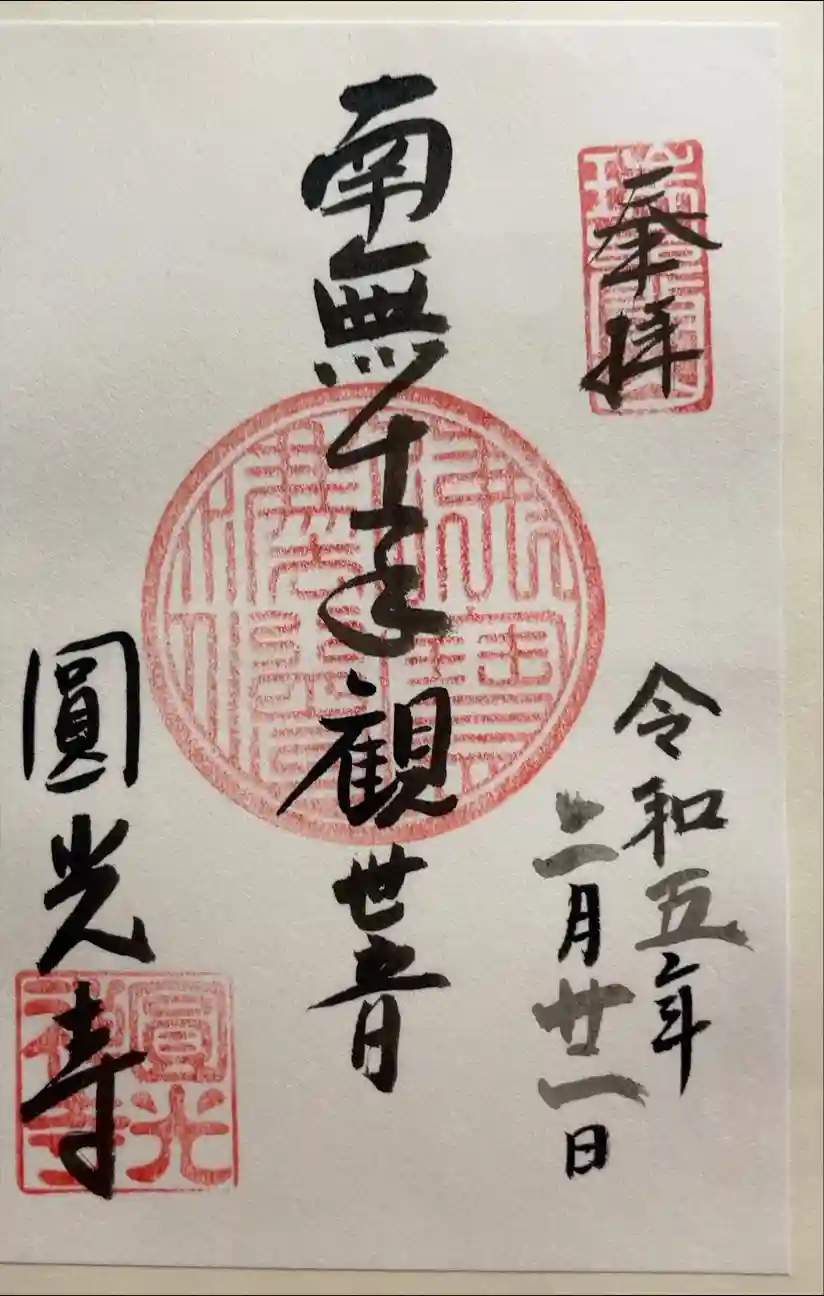 奉拝
令和五年
三月廿一日
南無千手観世音
圓光寺
圓光
禅寺